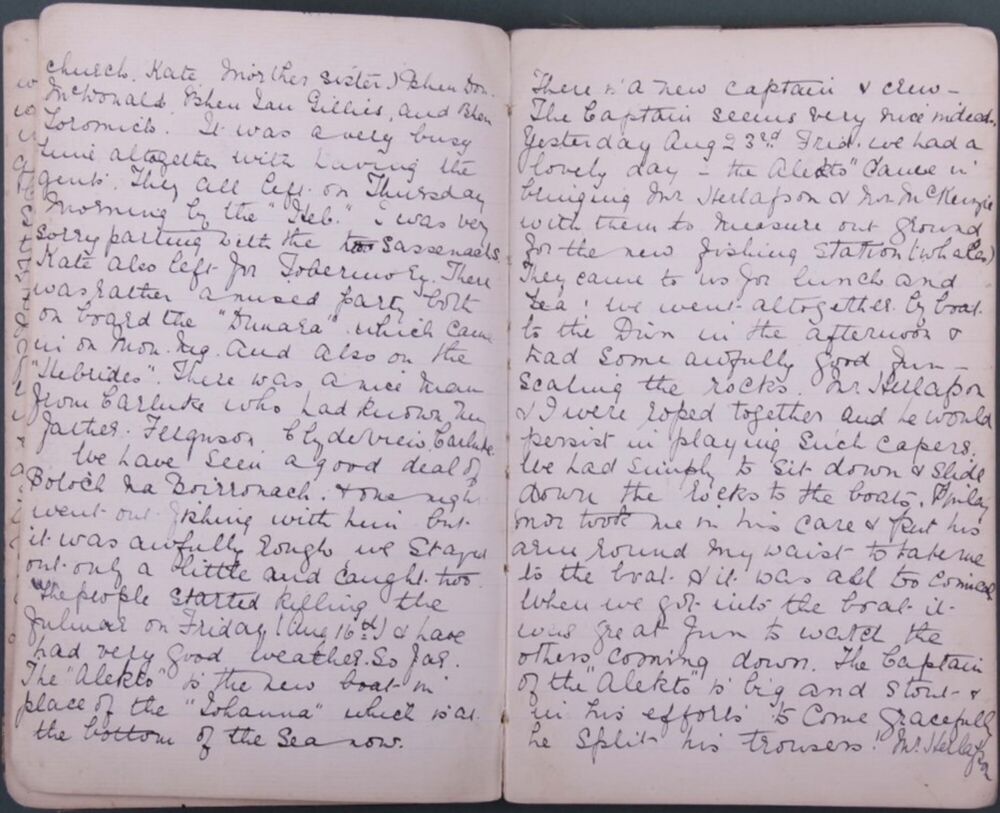 church. Kate, Mor (her sister) Bhen Don.
McDonald Bhen Ian Gillies, and Bhen
It was a very busy
time altogether with having the
gents. They all left on Thursday
morning by the "Heb." I was very
sorry parting with the two Sassenachs.
Kate also left for Tobermory. There
was rather a mixed party both
on board the "Dunara" which came
in on Mon. mg. and also on the
"Hebrides". There was a nice man
from Carluke who had known my
father. Ferguson Clydeview, Carluke.
We have seen a good deal of
Boloch na Boirronach. & one night
went out fishing with him but
it was awfully rough we stayed
out only a little and caught two.
The people started killing the
fulmar on Friday (Aug 16th) & have
had very good weather. So far.
The "Alekto" is the new boat in
place of the "Johanna" which is at
the bottom of the sea now.
There is a new captain & crew –
The Captain seems very nice indeed.
Yesterday Aug 23rd Frid. we had a
lovely day – the Alekto" came in
bringing Mr Herlafson & Mr McKenzie
with them to measure out ground
for the new fishing station (whales)
They came to us for lunch and
tea! we went altogether by boat
to the Dùn in the afternoon &
had some awfully good fun –
Scaling the rocks. Mr. Herlafson
& I were roped together and he would
persist in playing such capers.
We had simply to sit down & slide
down the rocks to the boats, Finlay
mòr took me in his care & put his
arm round my waist to take me
to the boat & it was all too comical
When we got into the boat it
was great fun to watch the
others coming down. The Captain
of the "Alekto" is big and stout &
in his efforts to come gracefully
he split his trousers! Mr. Herlafson